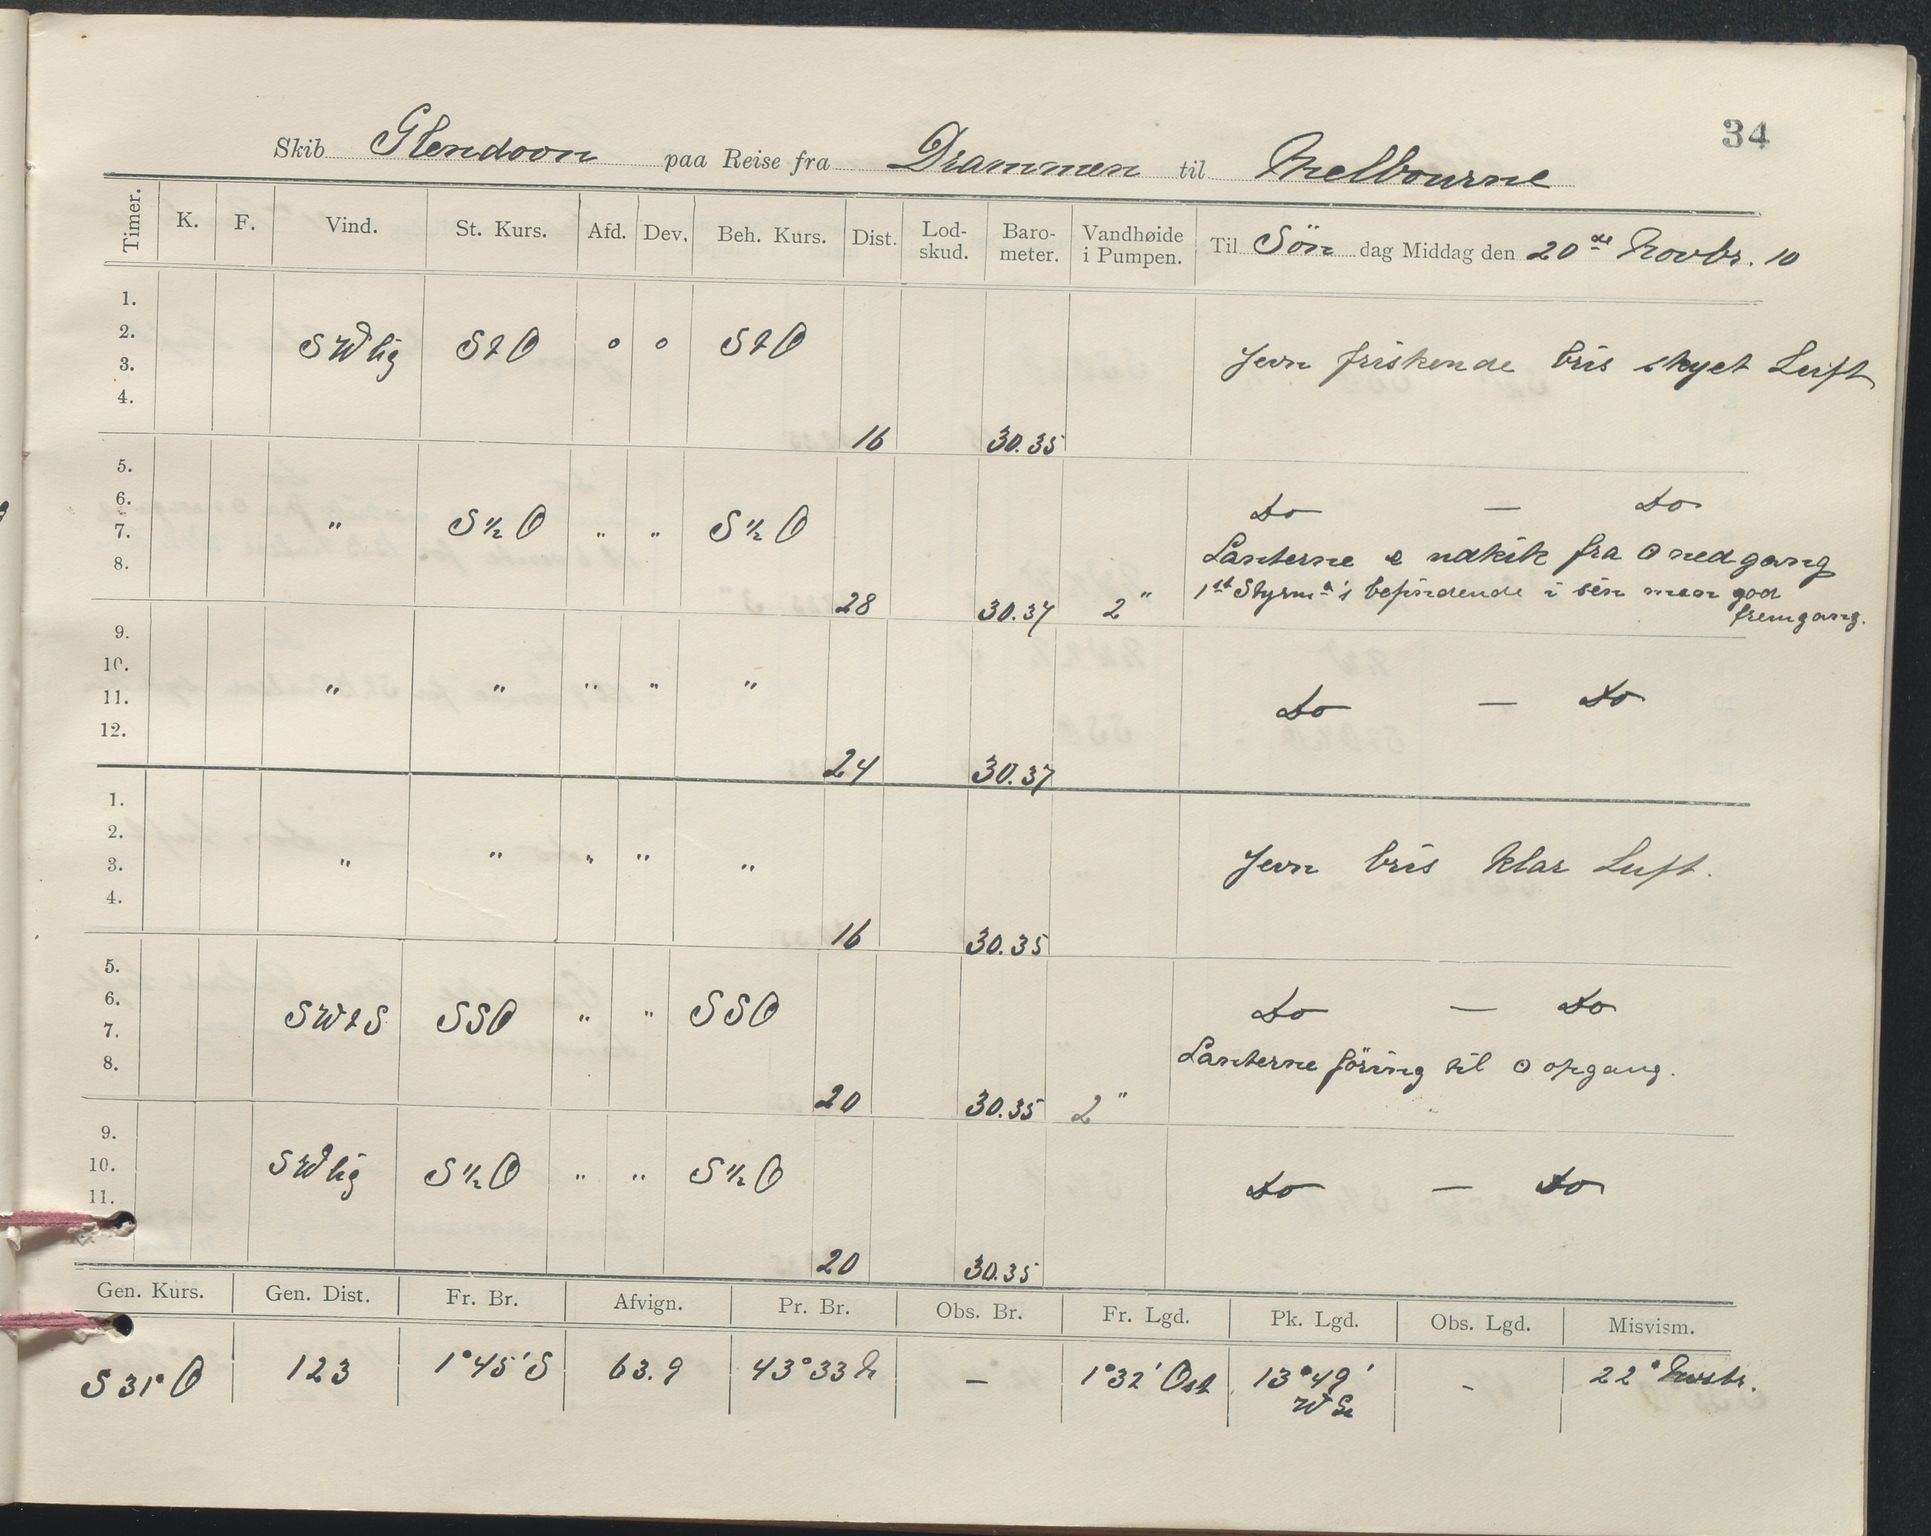 34
Skib Glendoon paa Reise fra Drammen til Melbourne
Timer. K. F. Vind. St. Kurs. Afd. Dev. Beh. Kurs. Dist. Lod-skud. Baro-meter. Vandhøide i Pumpen. Til Søn dag Middag den 20de Novbr. 10
1.
2.
3.
4.
SWlig StO o o StO Jevn friskende bris skyet Luft
16 30.35
5.
6.
7.
8.
" S½O " " S½O do — do
Lanterne & udkik fra ʘ nedgang
1st Styrm's befindende i sén men god
fremgang.
28 30.37 2"
9.
10.
11.
12.
" " " " " do — do
24 30.37
1.
2.
3.
4.
" " " " " Jevn bris klar Luft.
16 30.35
5.
6.
7.
8.
SWtS SSO " " SSO do — do
Lanterne föring til ʘ opgang.
20 30.35 2"
9.
10.
11.
SWlig S½O " " S½O do — do
20 30.35
Gen. Kurs. Gen. Dist. Fr. Br. Afvign. Pr. Br. Obs. Br. Fr. Lgd. Pk. Lgd. Obs. Lgd. Misvism.
S 31° O 123 1°45'S 63.9 43°33 N — 1°32' Ost 13°49' - 22°